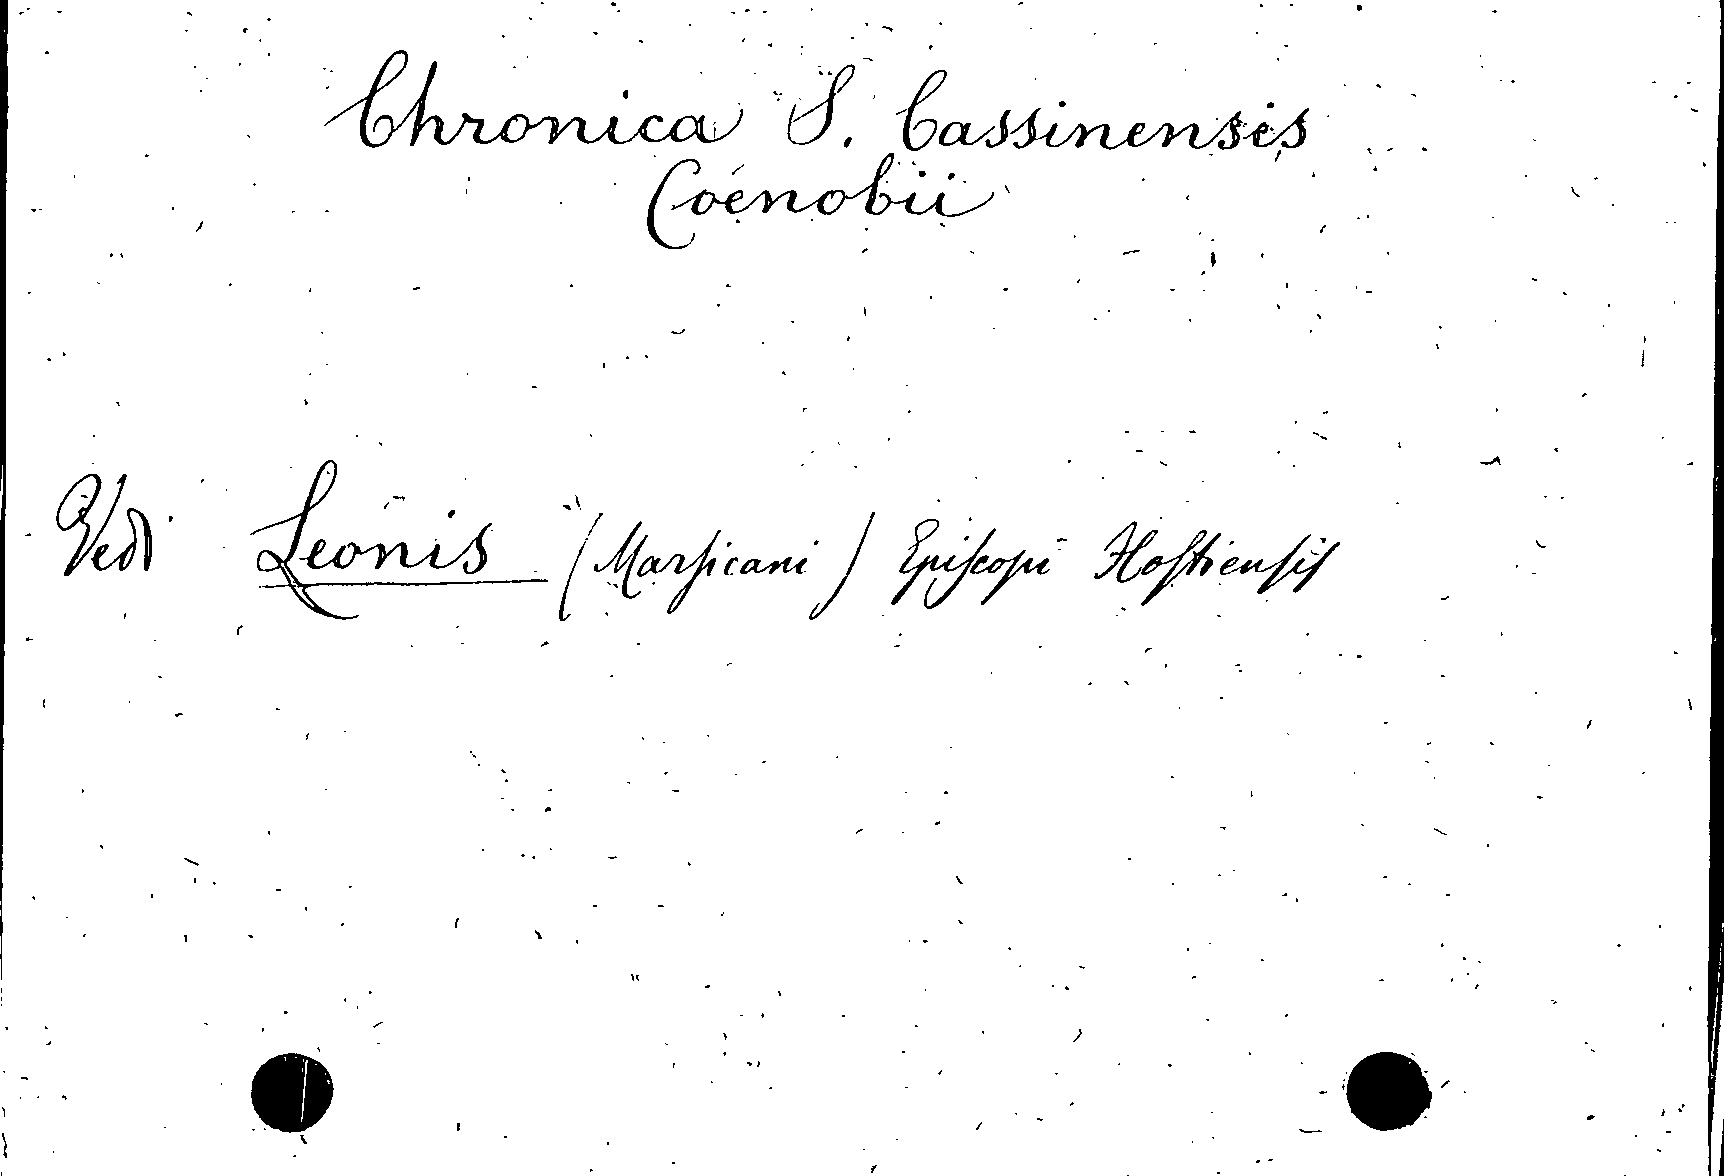 Chronica S. Cassinensis
Coenobii
Vedi Leonis (Marsicani) Episcopi Hostiensis